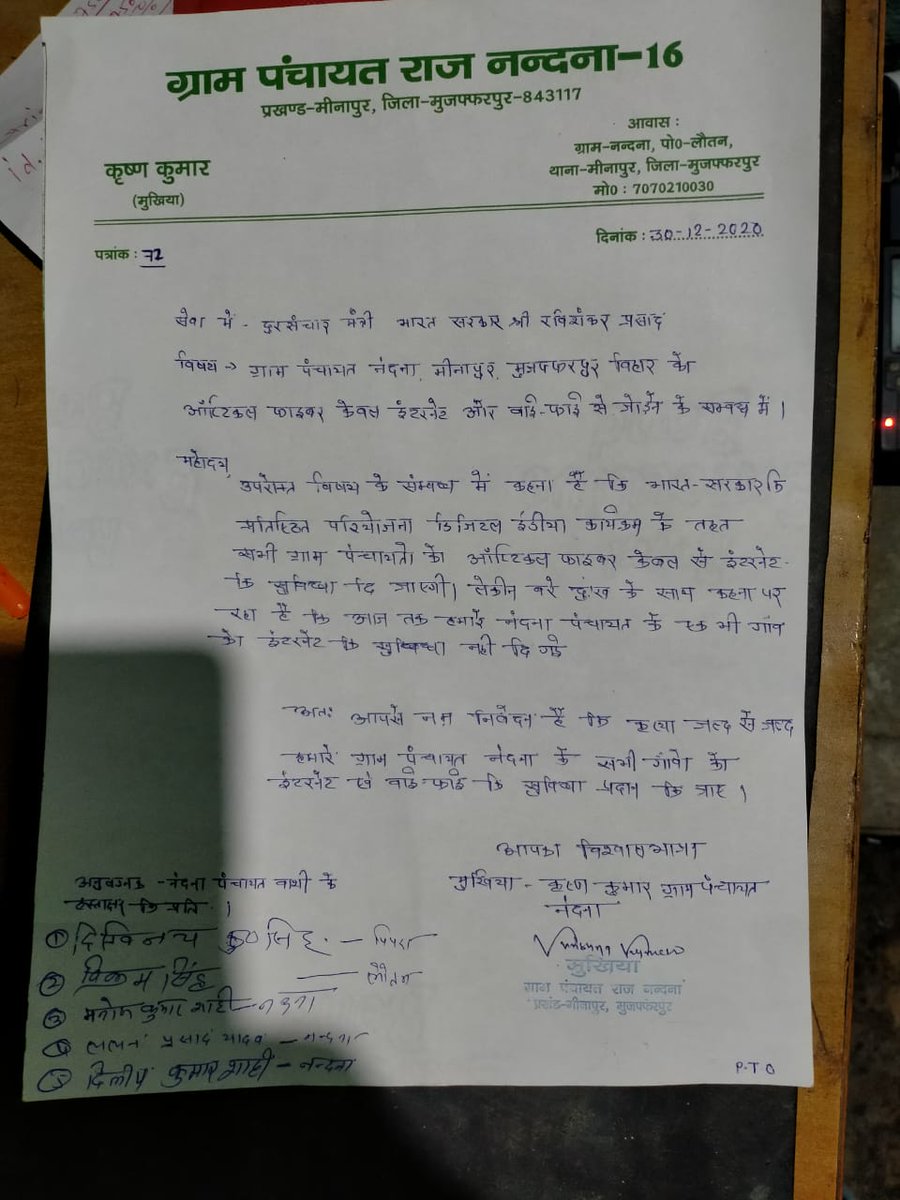 ग्राम पंचायत राज नन्दना-16
प्रखण्ड-मीनापुर, जिला-मुजफ्फरपुर-843117
कृष्ण कुमार
(मुखिया)
आवास :
ग्राम-नन्दना, पो0-लौतन,
थाना-मीनापुर, जिला-मुजफ्फरपुर
मो0 : 7070210030
पत्रांक : 72
दिनांक : 30-12-2020
सेवा में - दुरसंचार मंत्री भारत सरकार श्री रविशंकर प्रसाद
विषय → ग्राम पंचायत नंदना, मीनापुर, मुजफ्फरपुर विहार को
ऑप्टिकल फाइबर केबल इंटरनेट और वाई-फाई से जोड़ने के सम्बंध में।
महोदय,
उपरोक्त विषय के संम्बंध में कहना है कि भारत-सरकार कि
प्रतिष्ठित परियोजना डिजिटल इंडीया कार्यक्रम के तहत
सभी ग्राम पंचायतो को ऑप्टिकल फाइबर केबल से इंटरनेट-
कि सुविधा दि जाएगी। लेकीन बरे दुःख के साथ कहना पर
रहा है कि आज तक हमारे नंदना पंचायत के एक भी गाँव
को इंटरनेट कि सुविधा नही दि गई
अतः आपसे नम्र निवेदन है कि कृप्या जल्द से जल्द
हमारे ग्राम पंचायत नंदना के सभी गाँवो को
इंटरनेट एवं वाई-फाई कि सुविधा प्रदान कि जाए।
आपका विश्वासभाजन
मुखिया - कृष्ण कुमार ग्राम पंचायत
नंदना
मुखिया
ग्राम पंचायत राज नन्दना
प्रखंड-मीनापुर, मुजफ्फरपुर
नंदना पंचायत वाशी के
हस्ताक्षर कि प्रति ।
① सिंह - पिपरा
② विक्रम सिंह — लौतन
③ मनोज कुमार शाही - नन्दना
④ ललन प्रसाद यादव - नन्दना
⑤ दिलीप कुमार शाही - नन्दना
P.T.O